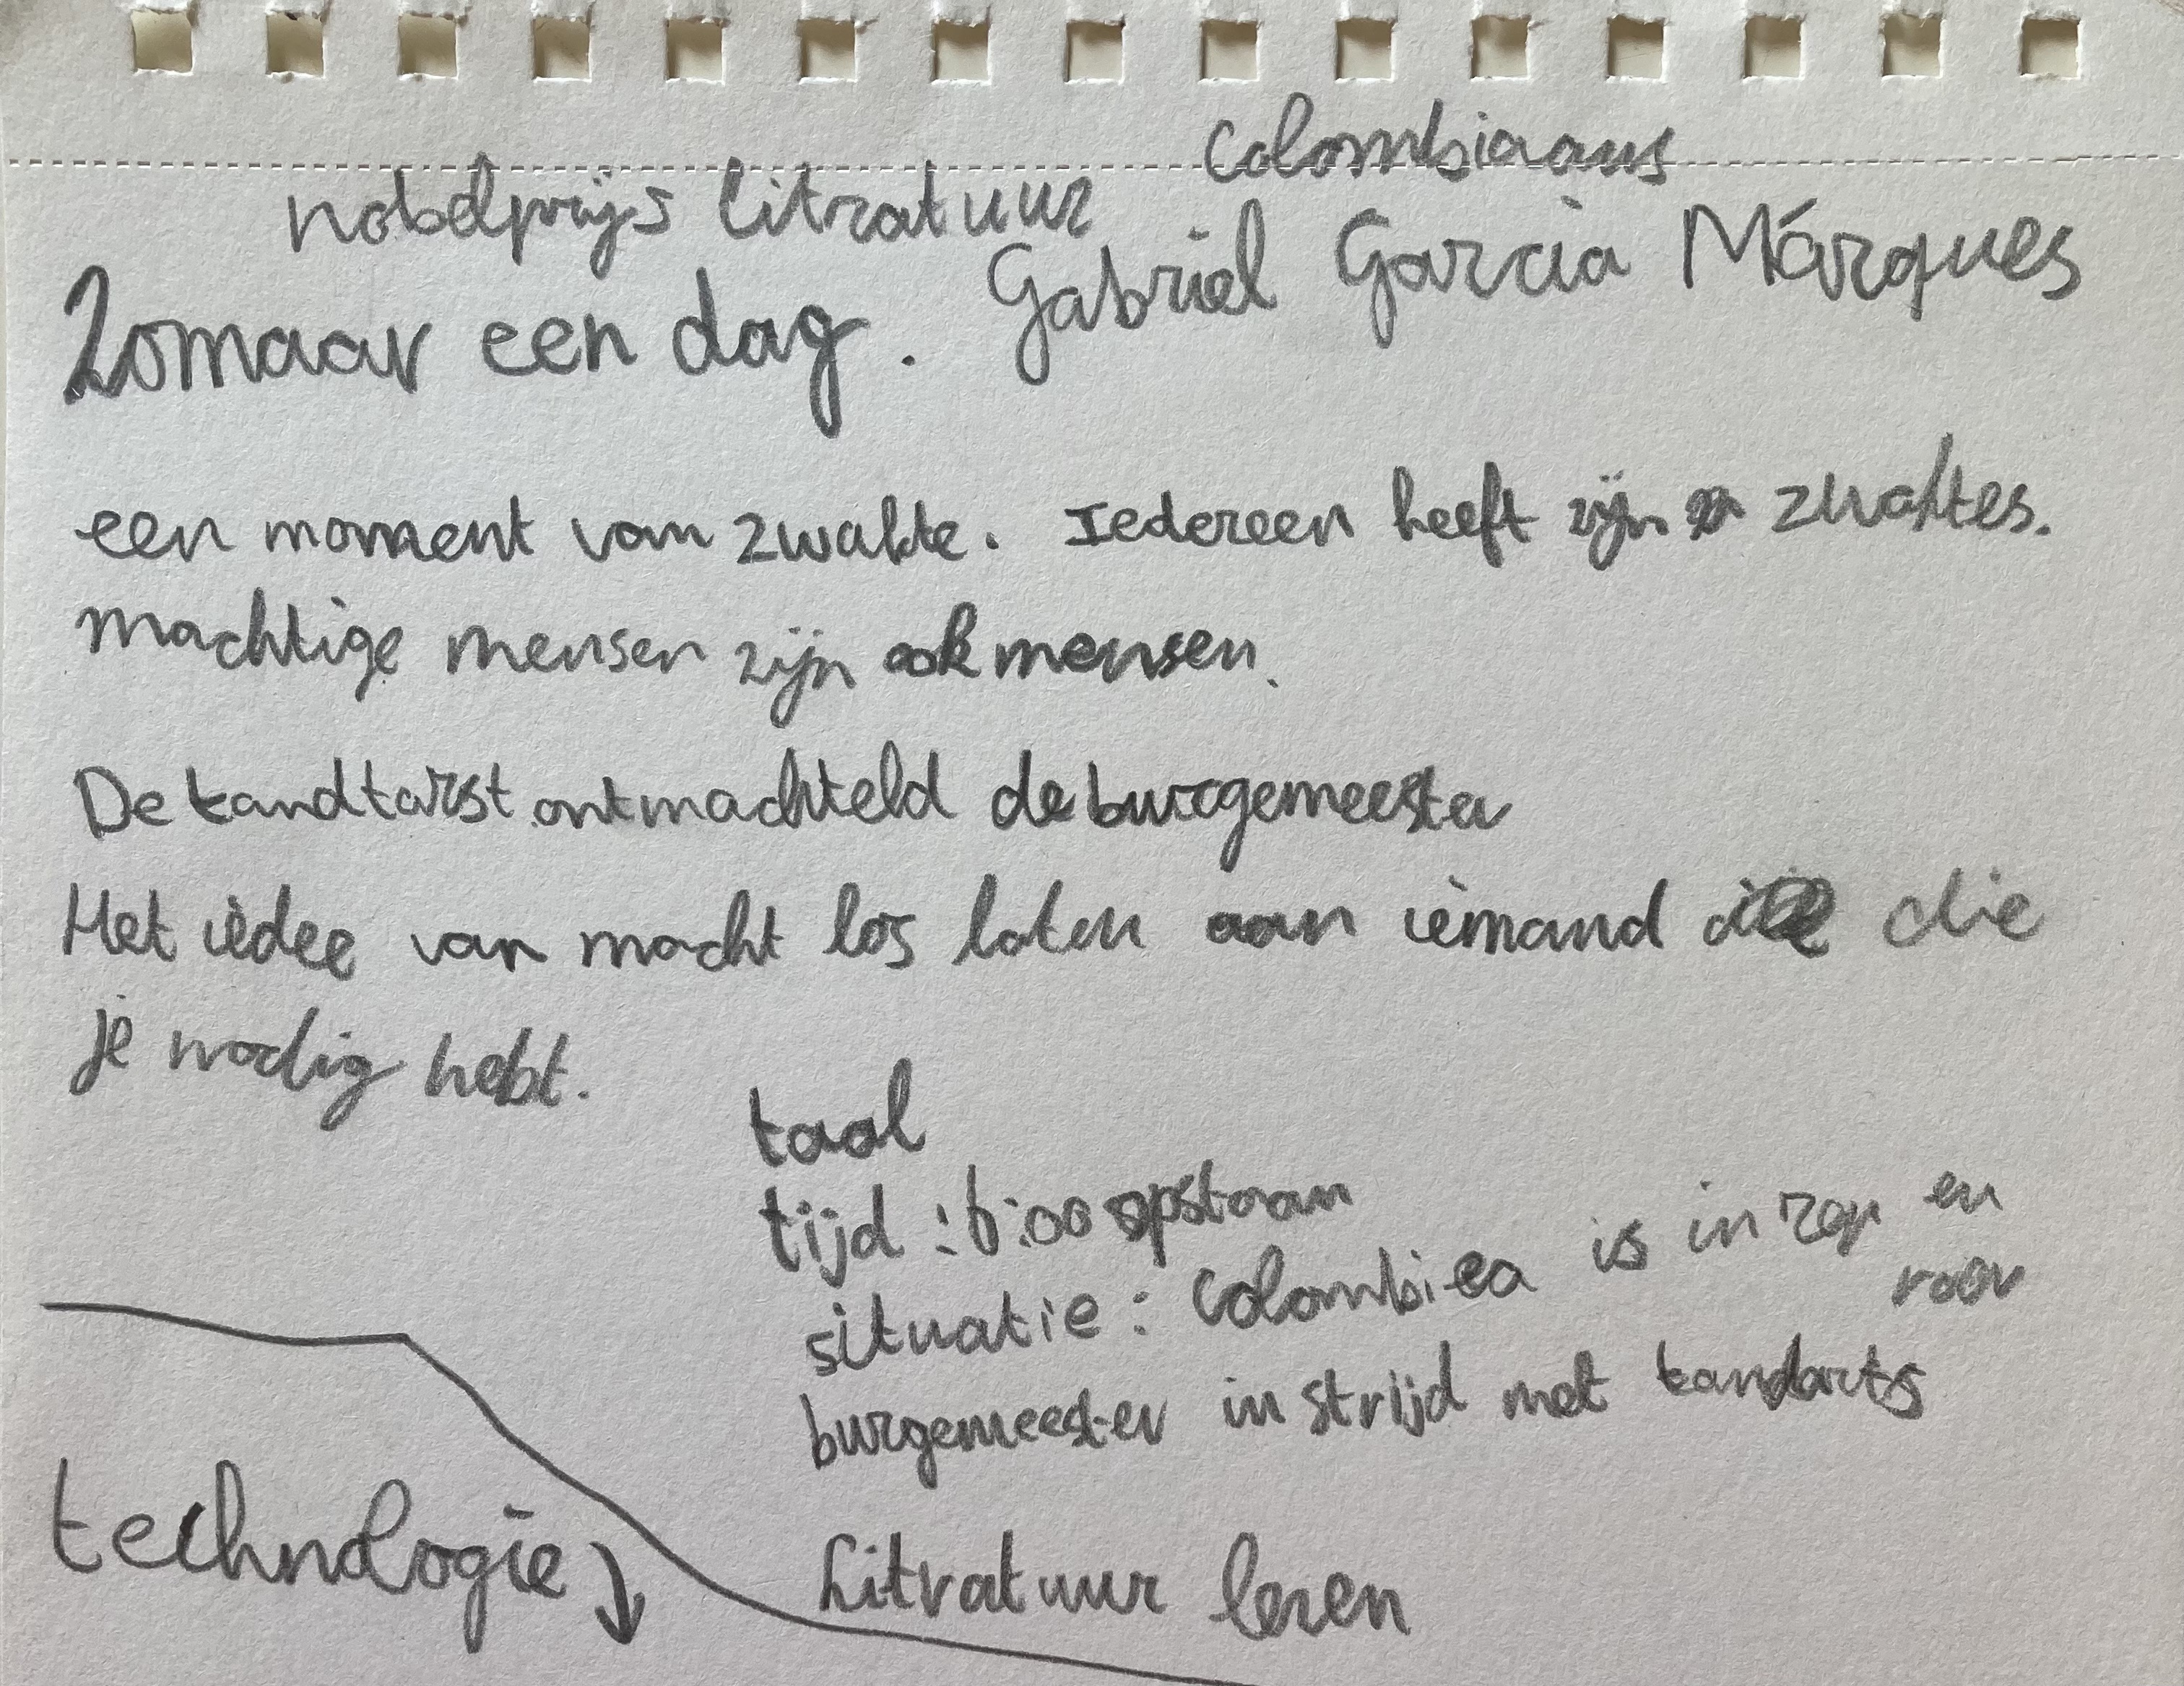 Colombiaans
nobelprijs litratuur
Zomaar een dag. Gabriel Garcia Márques
een moment van zwakte. Iedereen heeft zijn zwaktes.
machtige mensen zijn ook mensen.
De tandtarst ontmachteld de burgemeester
Het iedee van macht los laten aan iemand die
je nodig hebt.
taal
tijd : 6:00 opstaan
situatie : Colombiea is in rep en
roer
burgemeester in strijd met tandarts
technologie
Litratuur leren